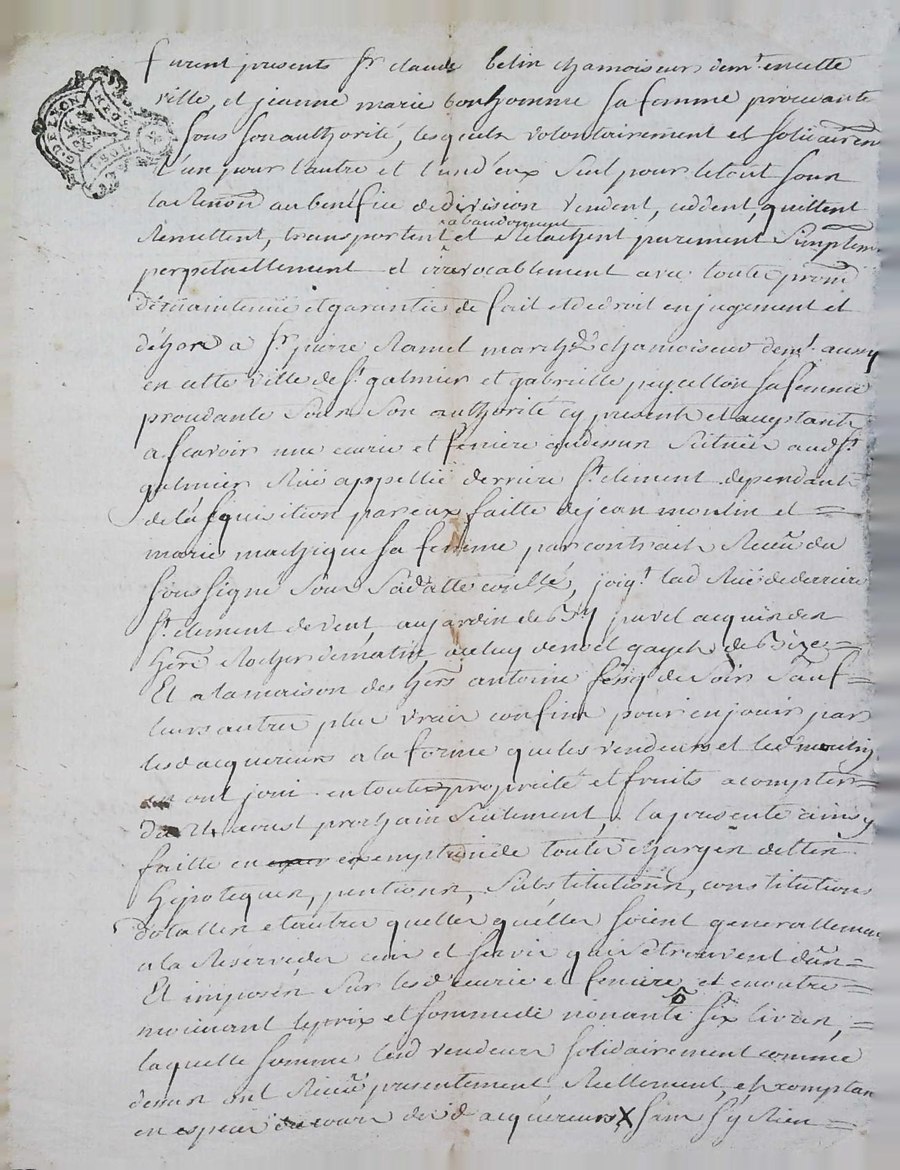 furent presents Sr claude belin chamoiseur demt en cette
ville, et jeanne marie bonhomme sa femme procedante
sous son authorité, lesquels volontairement et solidairem
l'un pour l'autre et l'un d'eux seul pour le tout sous
la Renon au benefice de division vendent, ceddent, quittent
abandonnent
Remettent, transportent et Relachent purement Simplem
perpetuellement et irrevocablement avec toute prom
de maintenüe et garantie de fait et de droit en jugement et
dehors a Sr pierre Ramel marchd chamoiseur demt aussy
en cette ville de St galmier et gabrielle peycellon sa femme
procedante Sous Son authorité cy presents et acceptants
a scavoir une ecurie et feniere au dessus scituée aud St
galmier Rüe appellée derriere St clement dependante
de l'acquisition par eux faitte de jean moulin et
marie sa femme par contrait Receu du
soussigné Sous Sa datte joigt lad Rüe de derriere
St clement de vent, au jardin de acquis des
hers Rocher de matin, de noel de bize
Et a la maison des hers antoine de Soir Sauf
leurs autres plus vrais confins pour en jouir par
lesd acquereurs a la forme que les vendeurs et led moulin
en ont joui en toute propriété et fruits a compter
du 24 aoust prochain Seulement, la presente ainsy
faitte en exemption de toutes charges dettes
hipoteques, pentions, Substitutions, constitutions
dotalles et autres quelles quelles soient generallement
a la Reserve des cens et servis qui se trouvent dûs
Et imposés Sur lesd ecurie et feniere, et en outre
moienant le prix et somme de nonante six livres,
laquelle somme lesd vendeurs solidairement comme
dessus ont Receu presentement Reellement, et comptant
en espece de cours desd acquereurs X Sans Sy Rien